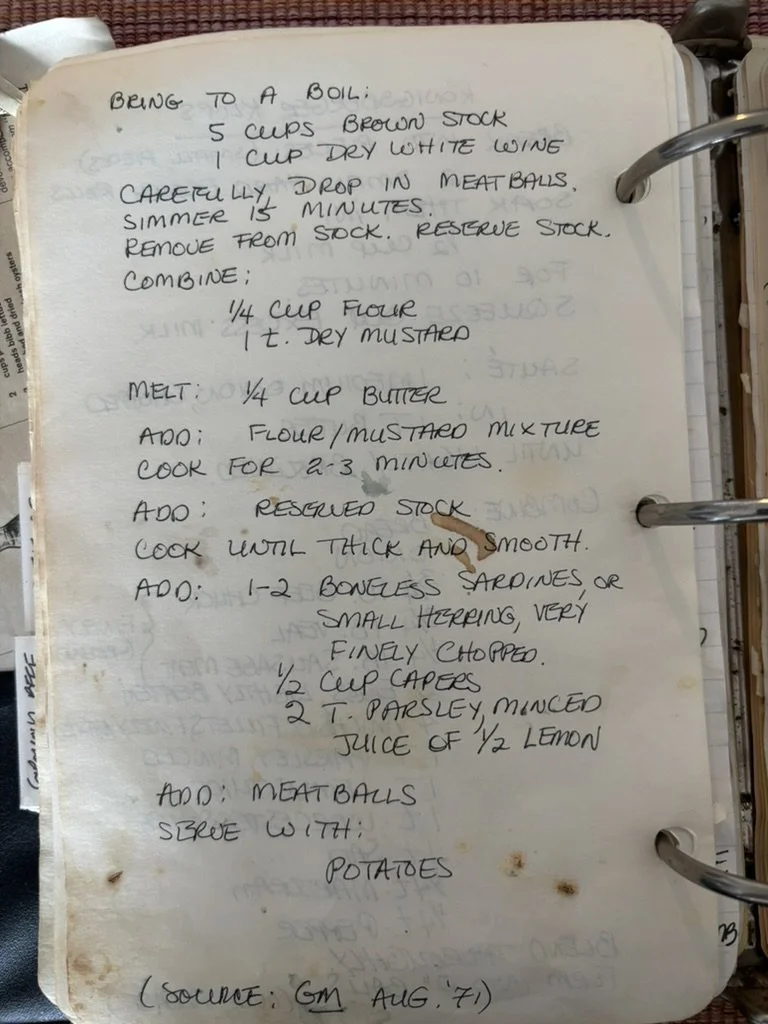 BRING TO A BOIL:
5 CUPS BROWN STOCK
1 CUP DRY WHITE WINE
CAREFULLY DROP IN MEATBALLS.
SIMMER 15 MINUTES.
REMOVE FROM STOCK. RESERVE STOCK.
COMBINE:
1/4 CUP FLOUR
1 t. DRY MUSTARD
MELT: 1/4 CUP BUTTER
ADD: FLOUR/MUSTARD MIXTURE
COOK FOR 2-3 MINUTES.
ADD: RESERVED STOCK
COOK UNTIL THICK AND SMOOTH.
ADD: 1-2 BONELESS SARDINES, OR
SMALL HERRING, VERY
FINELY CHOPPED.
1/2 CUP CAPERS
2 T. PARSLEY, MINCED
JUICE OF 1/2 LEMON
ADD: MEATBALLS
SERVE WITH:
POTATOES
(SOURCE: GM AUG. '71)